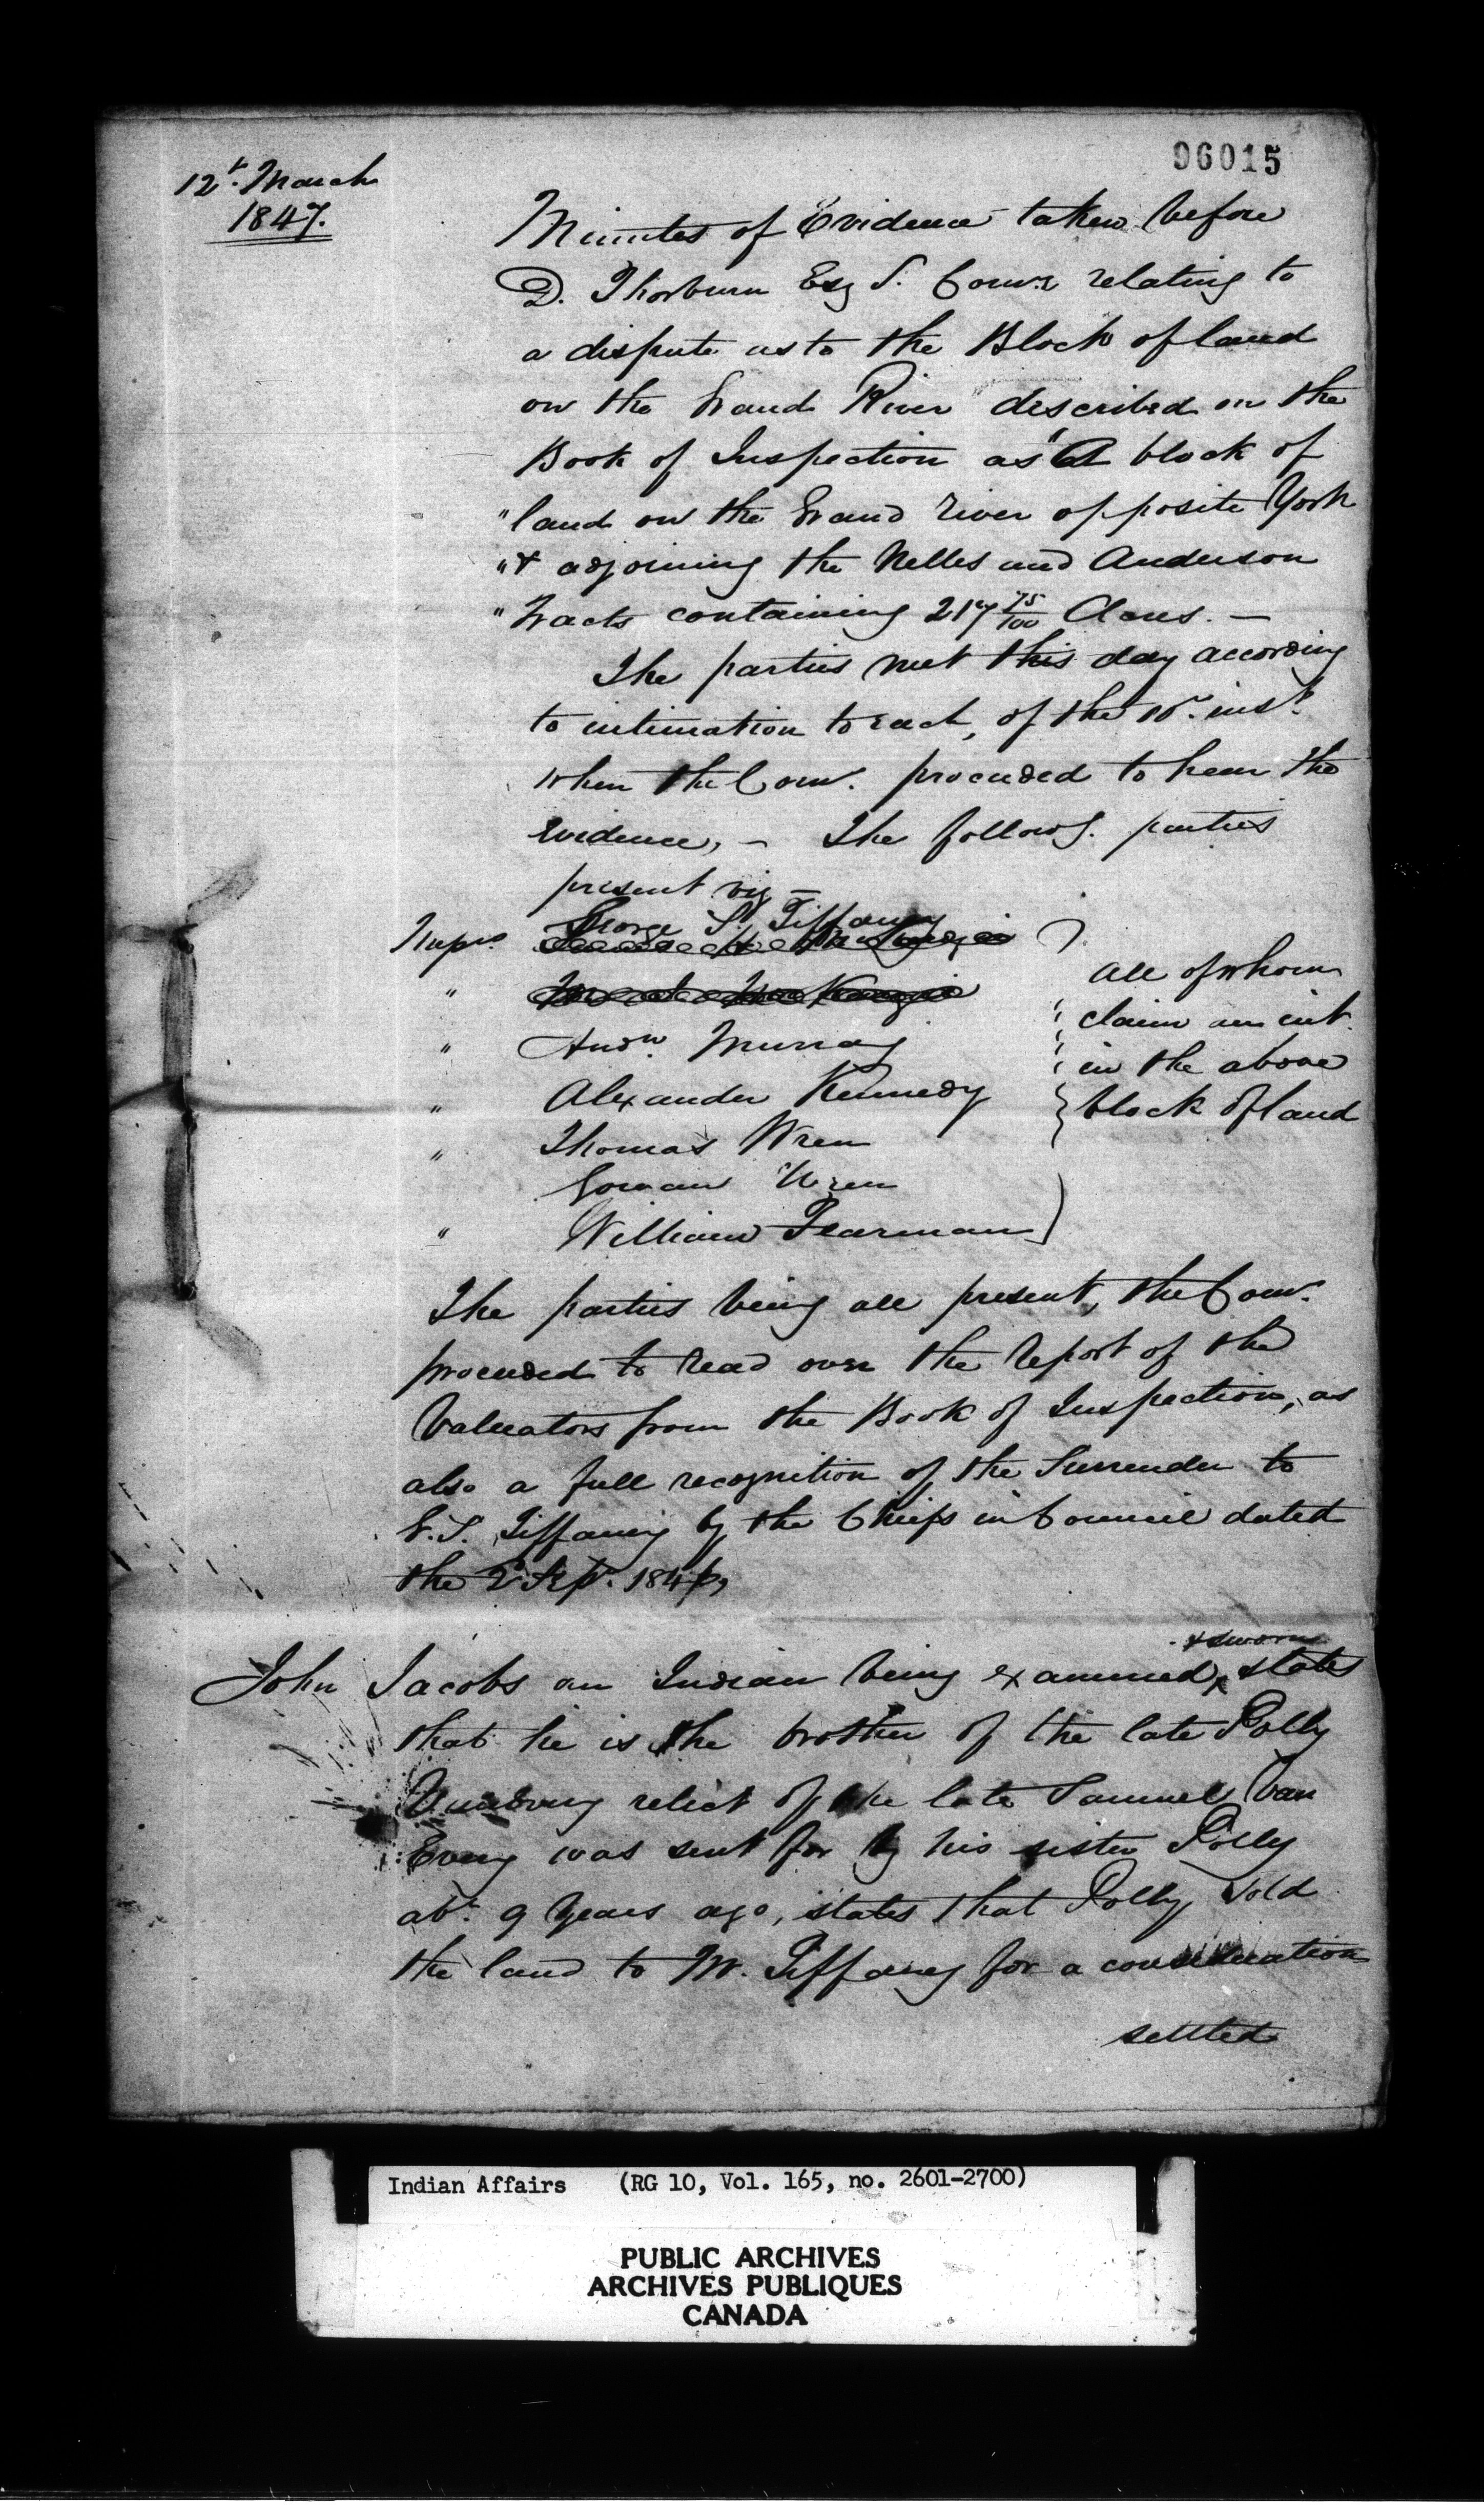 96015
12t. March
1847.
Minutes of Evidence taken before
D. Thorburn Esq S. Comr. relating to
a dispute as to the Block of land
on the Grand River described in the
Book of Inspection as "A block of
"land on the Grand river opposite York
"& adjoining the Nelles and Anderson
"Tracts containing 217 75/100 Acres. —
The parties met this day according
to intimation to each, of the inst.
when the Com. proceeded to hear the
Evidence, — The follow'g. parties
present viz —
George S. Tiffany
" Andw. Murray
" Alexander Kennedy
" Thomas Wren
Wren
" William Pearman
all of whom
claim an int.
in the above
block of land
The parties being all present, the Com.
proceeded to read over the report of the
Valuators from the Book of Inspection, as
also a full recognition of the Surrender to
G.S. Tiffany by the Chiefs in Council dated
the 2d Sept.
& sworn
John Jacobs an Indian being examined, states
that he is the brother of the late Polly
relict of the late Samuel Van
Every was sent for by his sister Polly
abt. 9 years ago, states that Polly sold
the land to Mr. Tiffany for a consideration
settled
Indian Affairs (RG 10, Vol. 165, no. 2601-2700)
PUBLIC ARCHIVES
ARCHIVES PUBLIQUES
CANADA